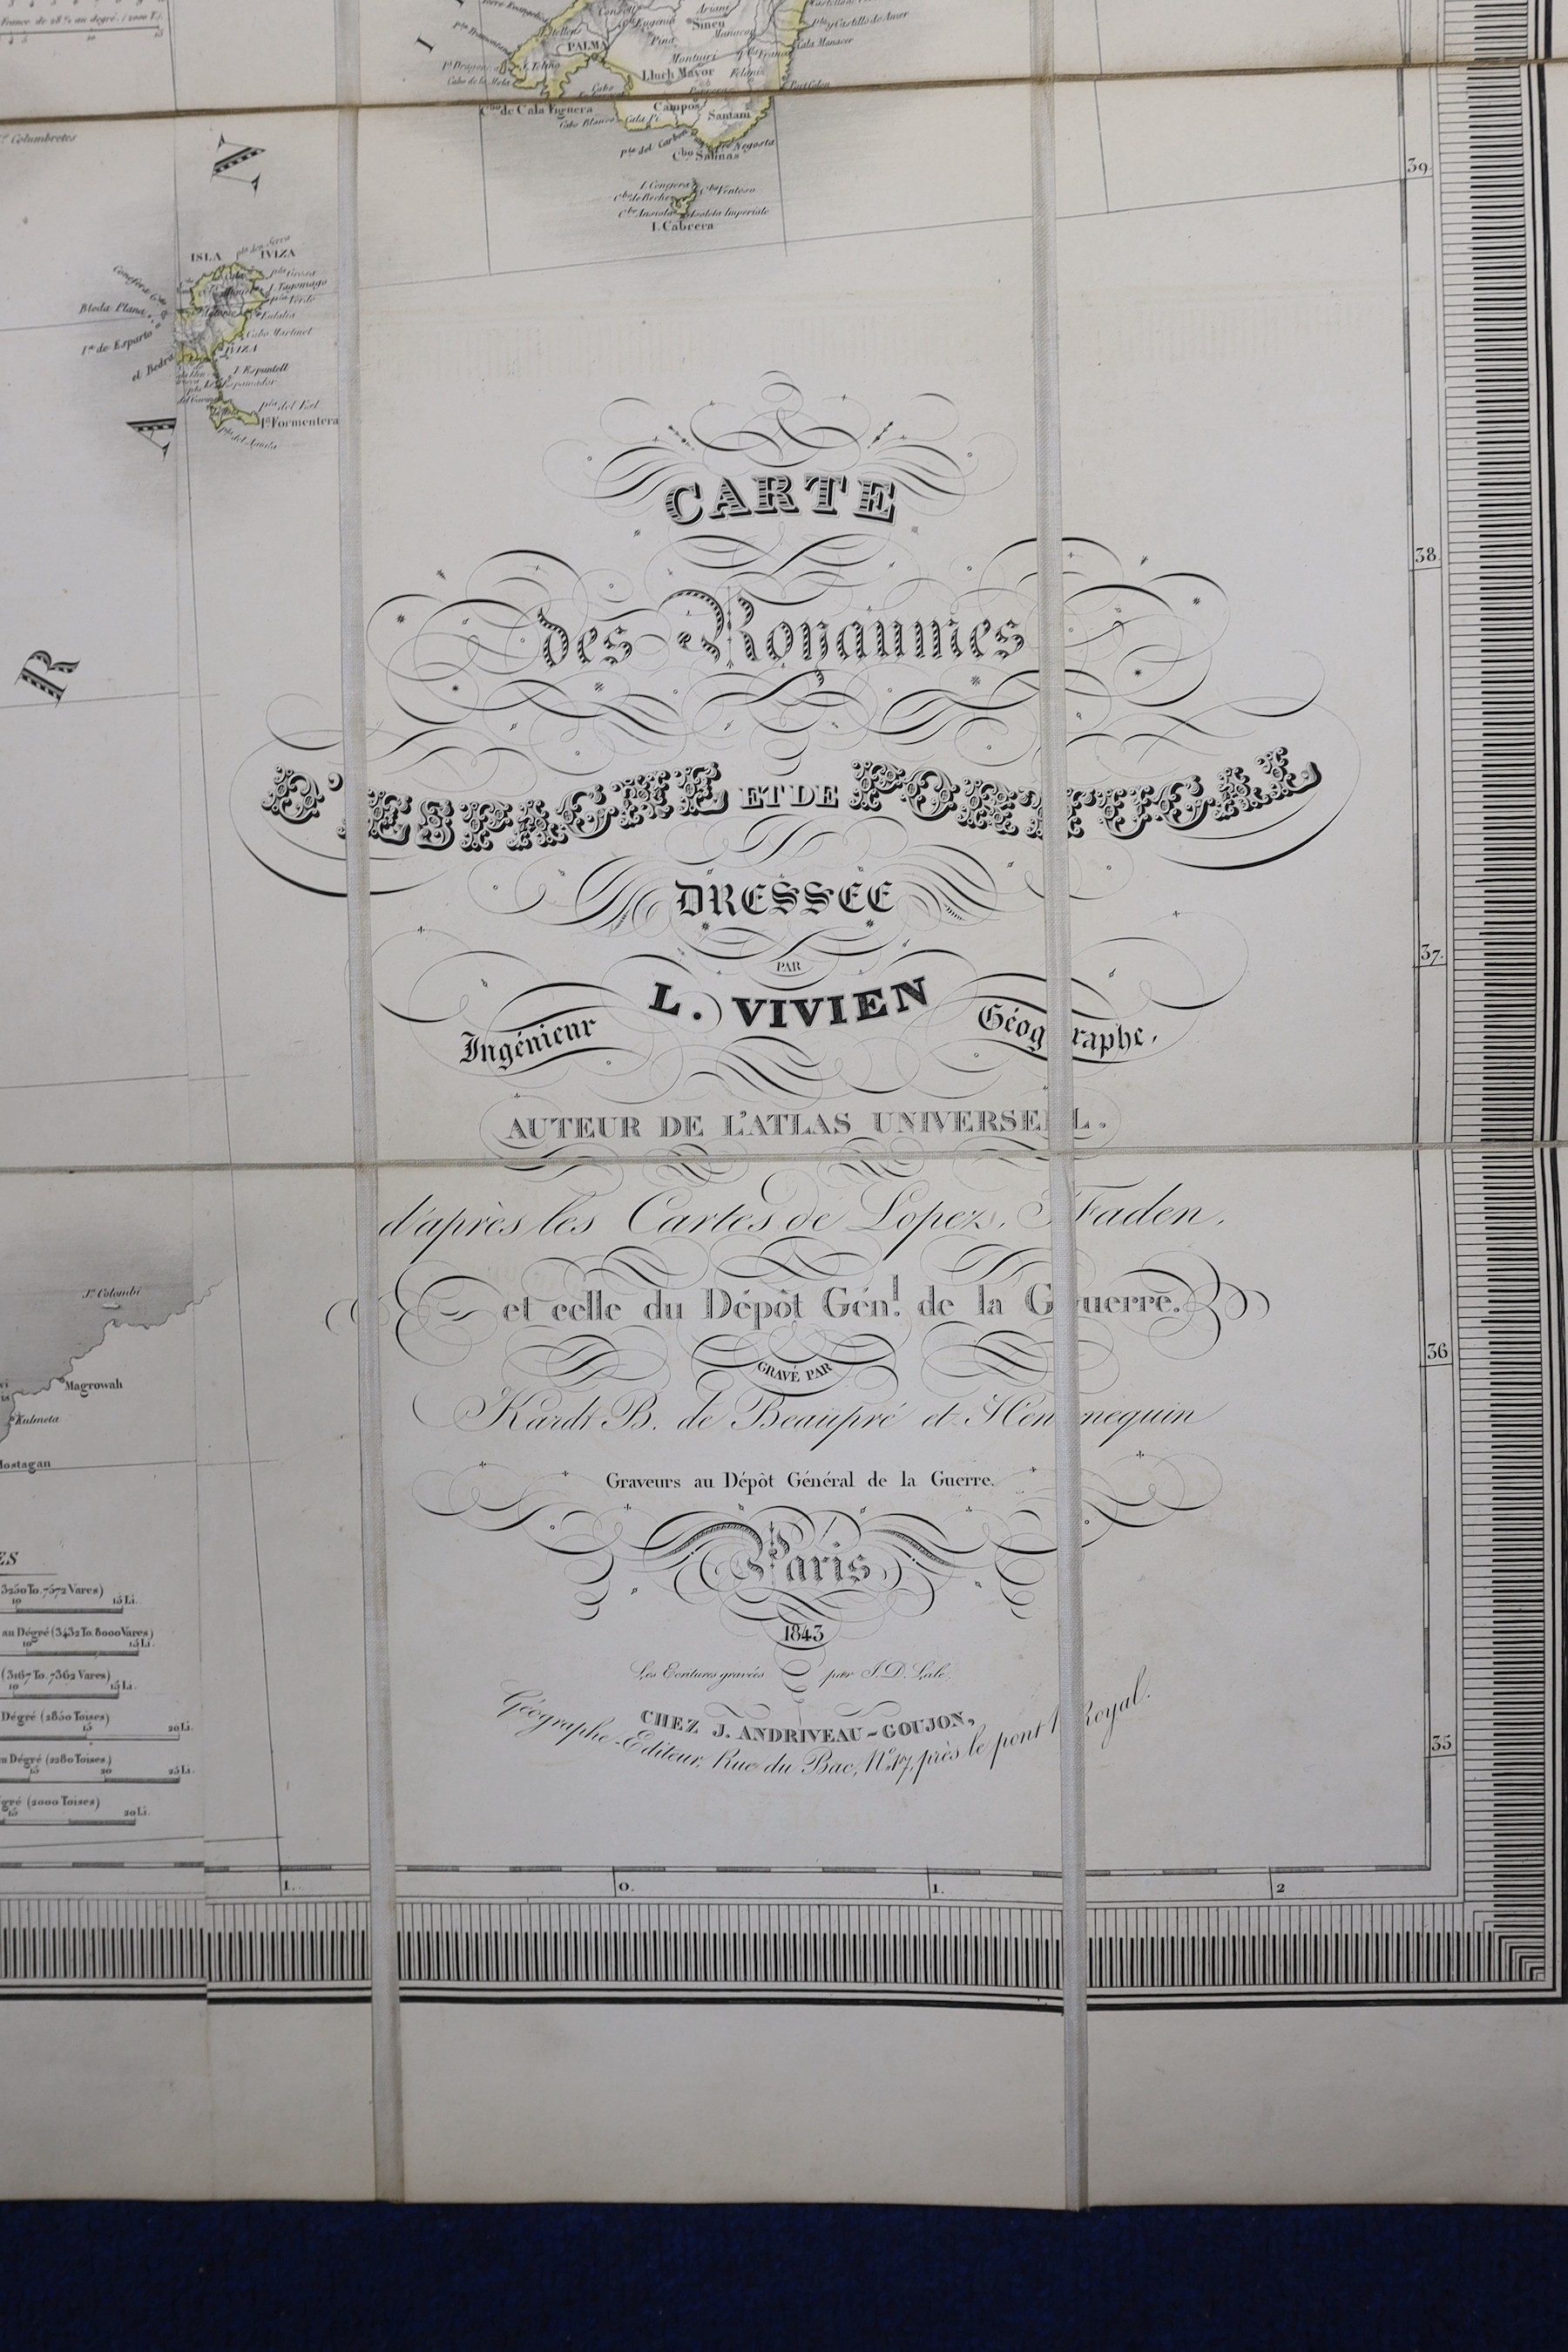 France de
PALMA
Sineu
Ariani
Pina
Montuiri
Manacor
Cala Manacor
Lluch Mayor
Felanix
Cbo de Cala Figuera
Campos
Santani
Cabo Blanco
Cala Pi
Cbo Salinas
39.
I. Conejera
Cbo Ventoso
Isoleta Imperiale
I. Cabrera
N
ISLA IVIZA
I. Tagomago
Bleda Plana
Cabo Martinet
Is de Esparto
IVIZA
el Bedra
I. Espantell
Ia Formentera
A
R
CARTE
38.
des Royaumes
D'ESPAGNE ET DE PORTUGAL
DRESSÉE
PAR
37.
L. VIVIEN
Ingénieur Géographe,
AUTEUR DE L'ATLAS UNIVERSEL.
d'après les Cartes de Lopez, Faden,
et celle du Dépôt Génl. de la Guerre.
36
GRAVÉ PAR
Magrowah
Kulmeta
Kardt B. de Beaupré et Hennequin
Graveurs au Dépôt Général de la Guerre.
Paris
1843
Les Ecritures gravées par J. D. Lale.
CHEZ J. ANDRIVEAU-GOUJON,
Géographe-Editeur, Rue du Bac, No. 17, près le pont Royal.
35
ES
3250 To. 7572 Vares)
10 15 Li.
au Dégré (3432 To. 8000 Vares)
10 15 Li.
(3167 To. 7362 Vares)
10 15 Li.
Dégré (2850 Toises)
15 20 Li.
Dégré (2280 Toises)
15 20 25 Li.
(2000 Toises)
15 20 Li.
1. 0. 1. 2